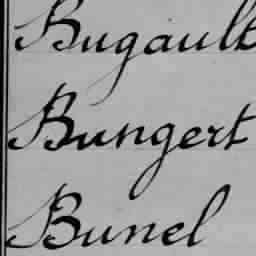 Bugault
Bungert
Bunel